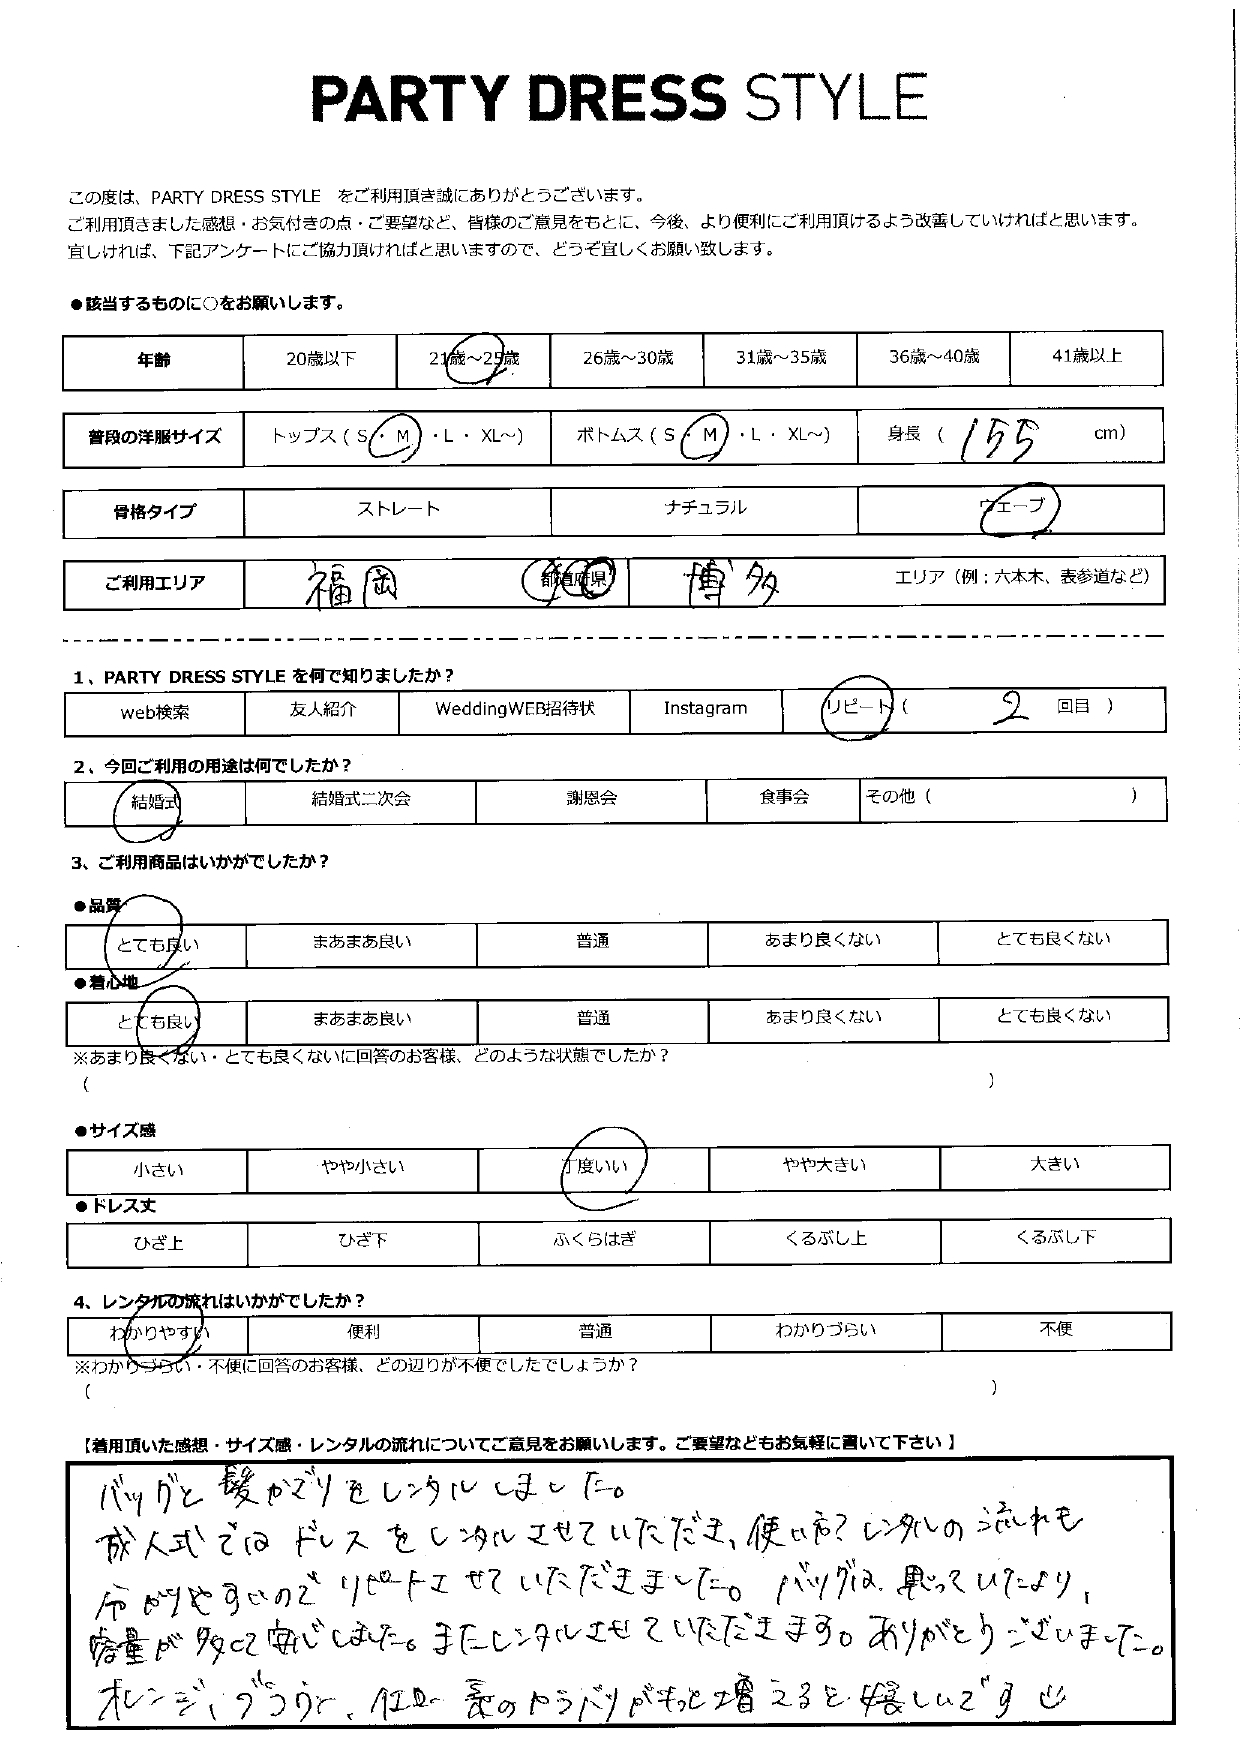 PARTY DRESS STYLE
この度は、PARTY DRESS STYLE をご利用頂き誠にありがとうございます。
ご利用頂きました感想・お気付きの点・ご要望など、皆様のご意見をもとに、今後、より便利にご利用頂けるよう改善していければと思います。
宜しければ、下記アンケートにご協力頂ければと思いますので、どうぞ宜しくお願い致します。
●該当するものに○をお願いします。
年齢 20歳以下 21歳～25歳 26歳～30歳 31歳～35歳 36歳～40歳 41歳以上
普段の洋服サイズ トップス ( S ・ M ・ L ・ XL～) ボトムス ( S ・ M ・ L ・ XL～) 身長 ( 155 cm)
骨格タイプ ストレート ナチュラル ウェーブ
ご利用エリア 福岡 都道府県 博多 エリア（例；六本木、表参道など）
1、PARTY DRESS STYLE を何で知りましたか？
web検索 友人紹介 WeddingWEB招待状 Instagram リピート ( 2 回目 )
2、今回ご利用の用途は何でしたか？
結婚式 結婚式二次会 謝恩会 食事会 その他 ( )
3、ご利用商品はいかがでしたか？
●品質
とても良い まあまあ良い 普通 あまり良くない とても良くない
●着心地
とても良い まあまあ良い 普通 あまり良くない とても良くない
※あまり良くない・とても良くないに回答のお客様、どのような状態でしたか？
( )
●サイズ感
小さい やや小さい 丁度いい やや大きい 大きい
●ドレス丈
ひざ上 ひざ下 ふくらはぎ くるぶし上 くるぶし下
4、レンタルの流れはいかがでしたか？
わかりやすい 便利 普通 わかりづらい 不便
※わかりづらい・不便に回答のお客様、どの辺りが不便でしたでしょうか？
( )
【着用頂いた感想・サイズ感・レンタルの流れについてご意見をお願いします。ご要望などもお気軽に書いて下さい】
バッグと髪かざりをレンタルしました。
成人式ではドレスをレンタルさせていただき、使い方やレンタルの流れも
分かりやすいのでリピートさせていただきました。バッグは、思っていたより、
容量が多くて安心しました。またレンタルさせていただきます。ありがとうございました。
オレンジ、ブラウン、イエロー系のやらバリがもっと増えると嬉しいです